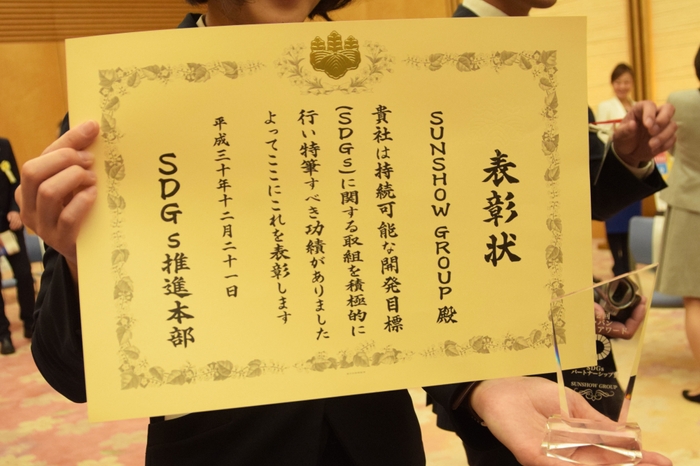 表彰状
SUNSHOW GROUP 殿
貴社は持続可能な開発目標
(SDGs)に関する取組を積極的に
行い特筆すべき功績がありました
よってここにこれを表彰します
平成三十年十二月二十一日
SDGs推進本部
SDGs
パートナーシップ賞
SUNSHOW GROUP